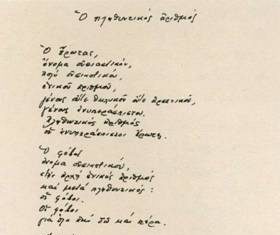 Ὁ πληθυντικός ἀριθμός
Ὁ ἔρωτας,
ὄνομα οὐσιαστικόν,
πολύ οὐσιαστικόν,
ἑνικοῦ ἀριθμοῦ,
γένους οὔτε θηλυκοῦ οὔτε ἀρσενικοῦ,
γένους ἀνυπεράσπιστου.
Πληθυντικός ἀριθμός
οἱ ἀνυπεράσπιστοι ἔρωτες.
Ὁ φόβος
ὄνομα οὐσιαστικόν,
στήν ἀρχή ἑνικός ἀριθμός
καί μετά πληθυντικός:
οἱ φόβοι.
Οἱ φόβοι
γιά ὅλα ἀπό δῶ καί πέρα.